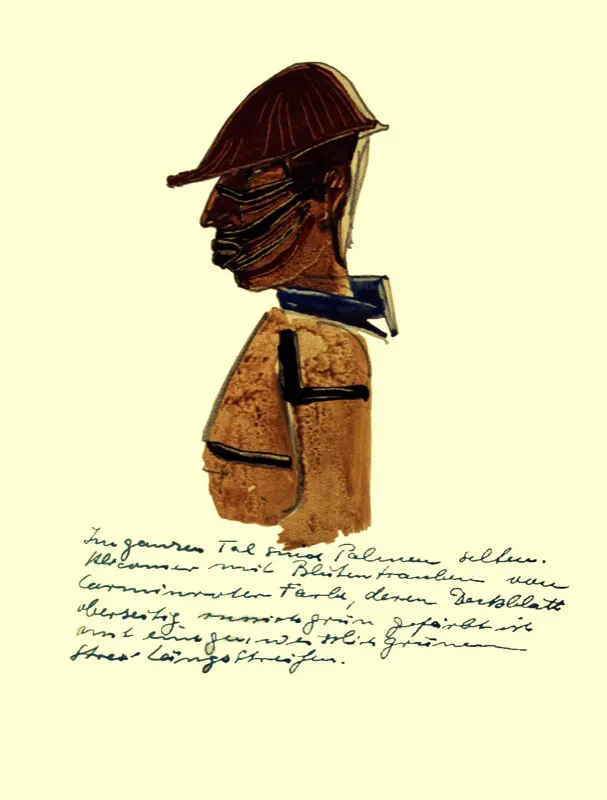 Im ganzen Tal sind Palmen selten.
mit Blütentrauben von
Carminroter Farbe, deren Deckblatt
oberseitig grün gefärbt ist
und einigen weisslich grünen
Längsstreifen.